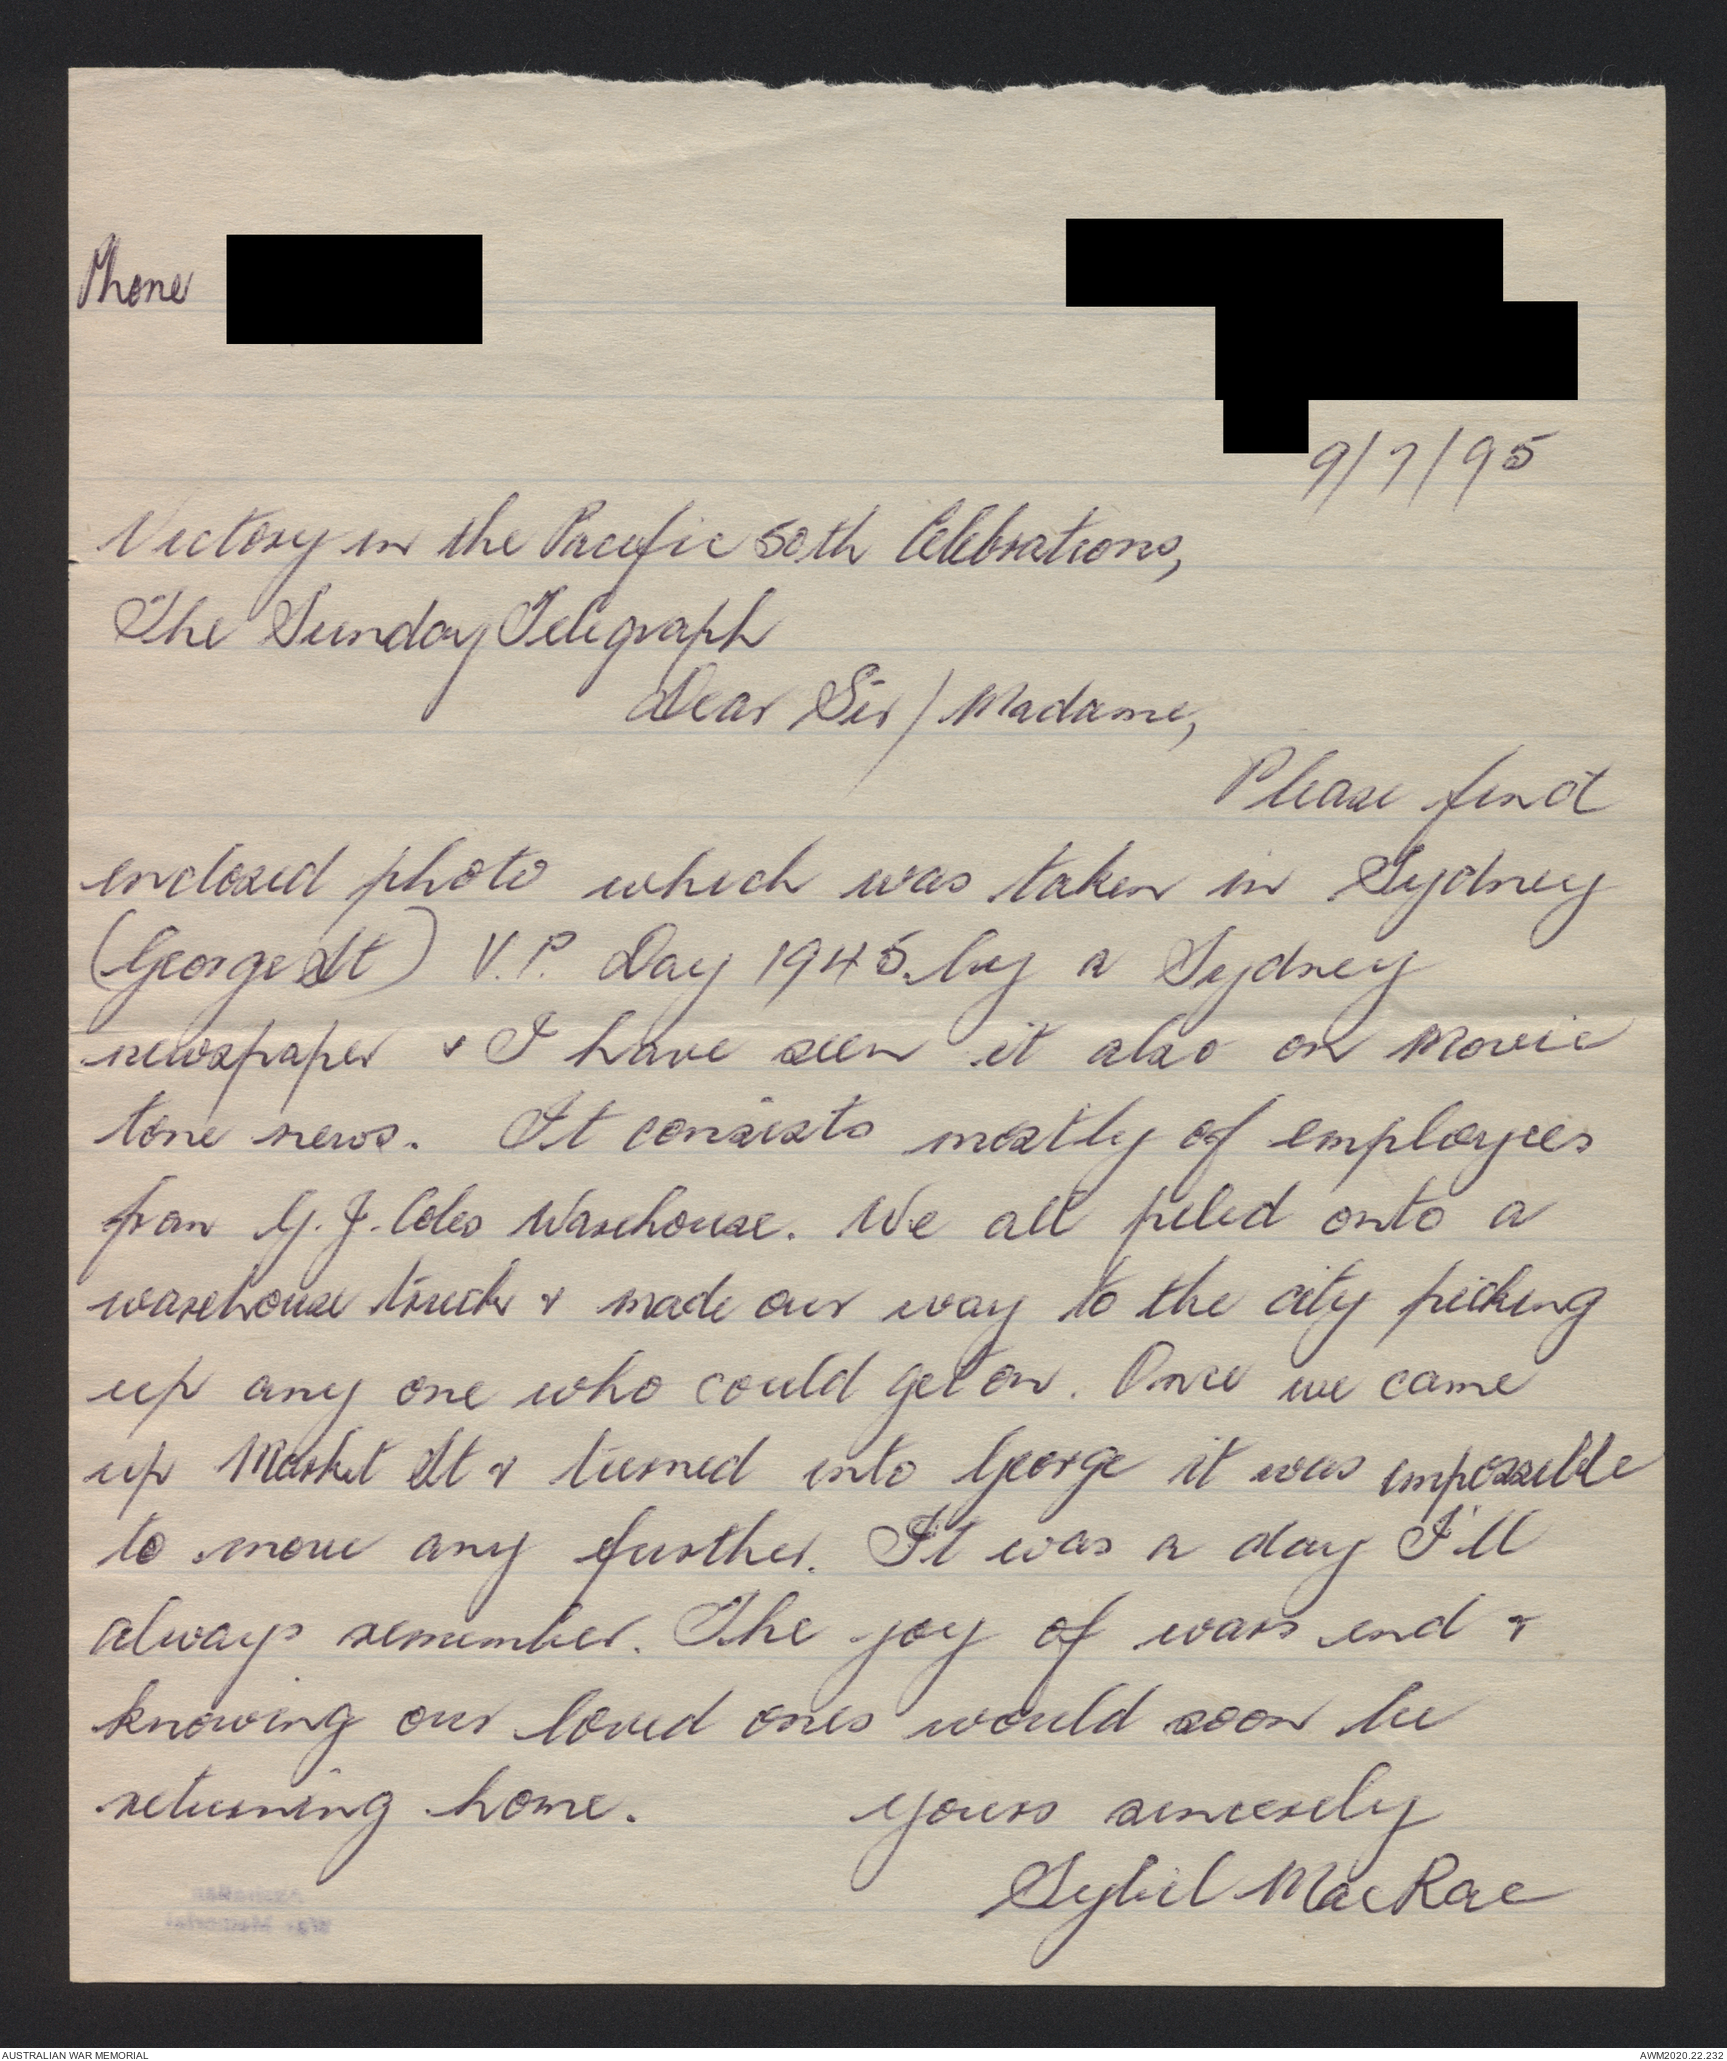 Phone
9/7/95
Victory in the Pacific 50th Celebrations,
The Sunday Telegraph
Dear Sir/Madame,
Please find
enclosed photo which was taken in Sydney
(George St) V.P. Day 1945. by a Sydney
newspaper & I have seen it also on Movie
tone news. It consists mostly of employees
from G. J. Coles Warehouse. We all piled onto a
warehouse truck & made our way to the city picking
up any one who could get on. Once we came
up Market St & turned into George it was impossible
to move any further. It was a day I'll
always remember. The joy of wars end &
knowing our loved ones would soon be
returning home. Yours sincerely
Sybil MacRae
Australian
War Memorial
AUSTRALIAN WAR MEMORIAL AWM2020.22.232